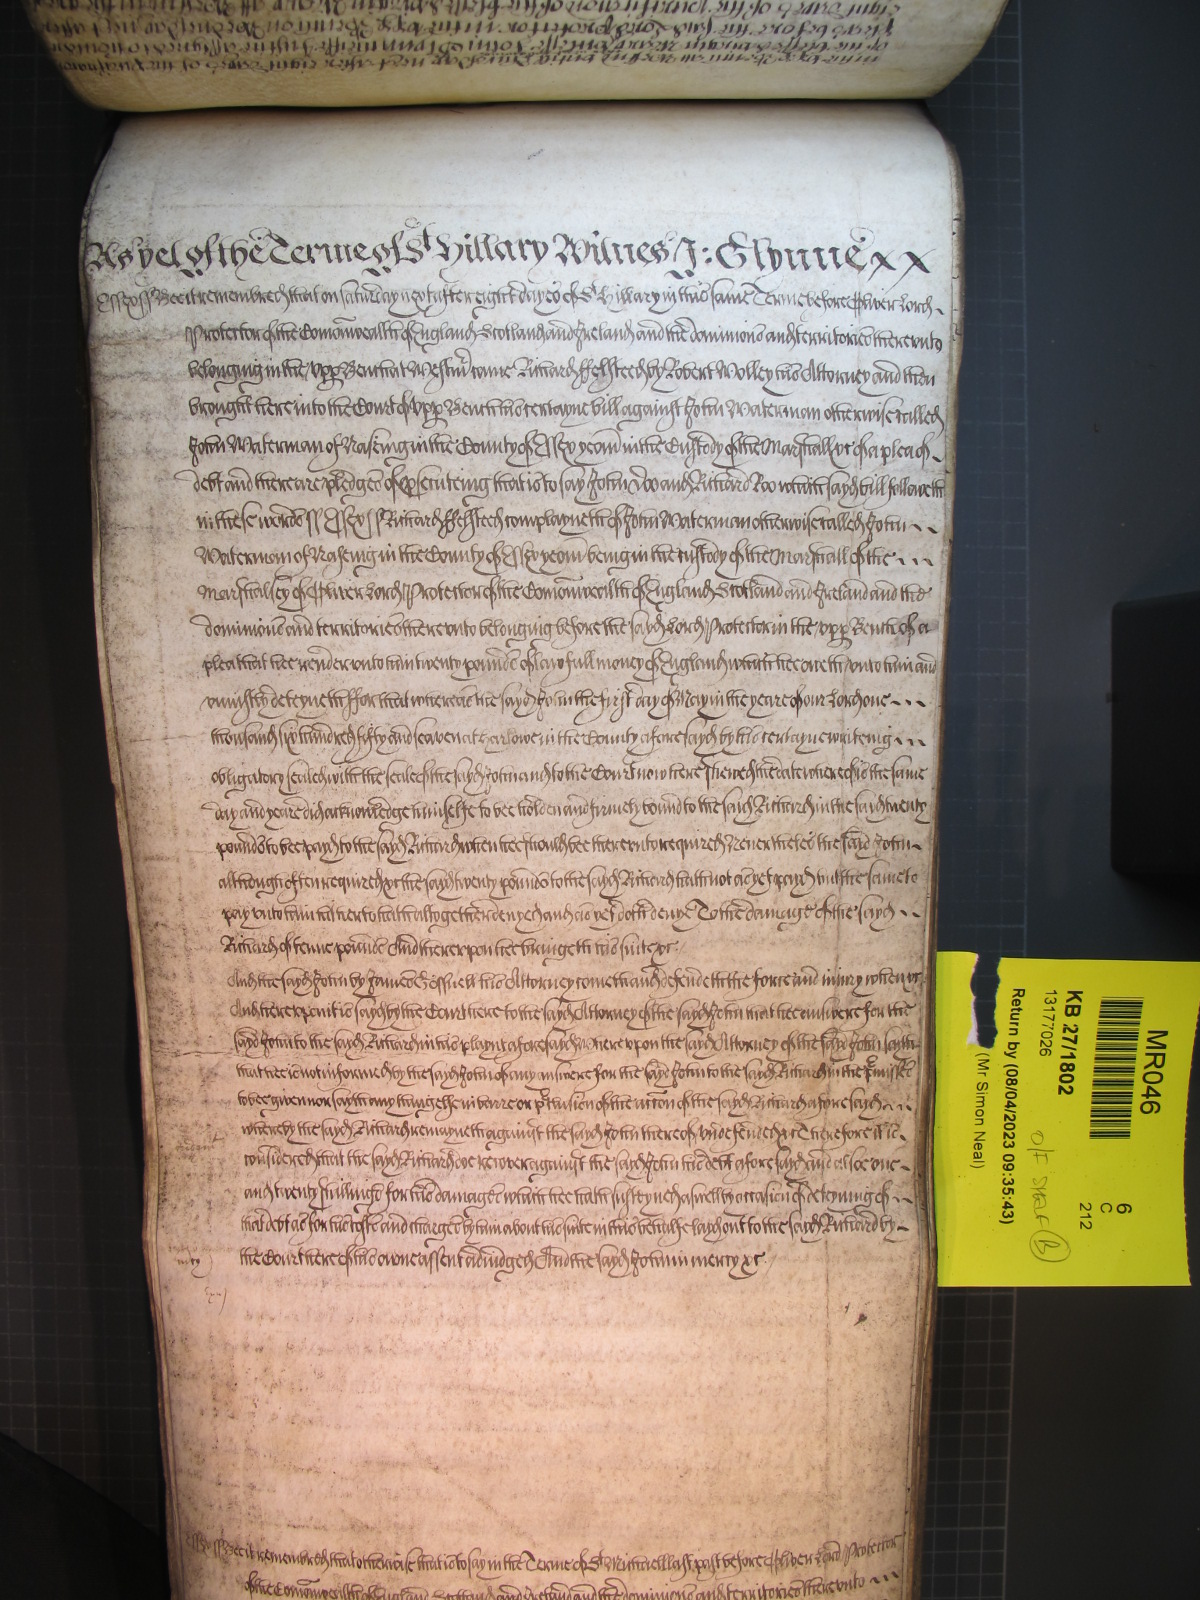 As yet of the Terme of St Hillary Witnes J: Glynne xx
Essex ss Bee it remembred that on saturday next after eight dayes of St Hillary in this same Terme before Oliver Lord
Protector of the Comonwealth of England Scotland and Ireland and the dominions and territories therevnto
belonging in the vpp Bench at Westmr came Richard ffelsteed by Robert Wolley his Attorney and then
brought here into the Court of vpp Bench his certayne bill against John Waterman otherwise called
John Waterman of Naseing in the County of Essex yeom in the Custody of the Marshall &c of a plea of
debt and there are pledges of psecuteing that is to say John Doo and Richard Roo which sayd bill followeth
in these words ss Essex ss Richard ffelsteed complayneth of John Waterman otherwise called John
Waterman of Naseing in the County of Essex yeom being in the custody of the Marshall of the
Marshalsey of Oliver Lord Protector of the Comonwealth of England Scotland and Ireland and the
dominions and territories therevnto belonging before the sayd Lord Protector in the vpp Bench of a
plea that hee render vnto him twenty pounds of lawfull money of England which hee oweth vnto him and
vniustly deteyneth ffor that whereas the sayd John the first day of May in the yeare of our Lord one
thousand six hundred fifty and seaven at Harlowe in the County aforesayd by his certayne writeing
obligatory sealed with the seale of the sayd John and to the Court now here shewed the date whereof is the same
day and yeare did acknowledge himselfe to bee holden and firmely bound to the sayd Richard in the sayd twenty
pounds to bee payd to the sayd Richard when hee should bee therevnto required Neverthelesse the said John
although often required &c the sayd twenty pounds to the sayd Richard hath not as yet payd but the same to
pay vnto him hitherto hath altogether denyed and as yet doth denye To the damage of the sayd
Richard of tenne pounds And therevpon hee bringeth this suite &c
And the sayd John by James his Attorney cometh and defendeth the force and iniury when &c
And therevpon it is sayd by the Court here to the sayd Attorney of the sayd John that hee answere for the
sayd John to the sayd Richard in his playnt aforesayd Wherevpon the sayd Attorney of the sayd John sayth
that hee is not informed by the sayd John of any answere for the sayd John to the sayd Richard in the pmisses
to bee given nor sayth any thinge else in barre or pclusion of the accon of the sayd Richard aforesayd
whereby the sayd Richard remayneth against the sayd John thereof vndefended &c Therefore it is
considered that the sayd Richard doe recover against the sayd John his debt aforesayd and alsoe one
and twenty shillings for his damages which hee hath susteyned aswell by occasion of deteyning of
that debt as for his costs and charges by him about his suite in this behalfe layd out to the sayd Richard by
the Court here of his owne assent adiudged And the sayd John in mercy &c
Essex ss Bee it remembred that otherwise that is to say in the Terme of St Michaell last past before Oliver Lord Protector
of the Comonwealth of England Scotland and Ireland and the dominions and territories therevnto
MR046
6
C
212
KB 27/1802
13177026
O/F SHELF (B)
Return by (08/04/2023 09:35:43)
(Mr Simon Neal)